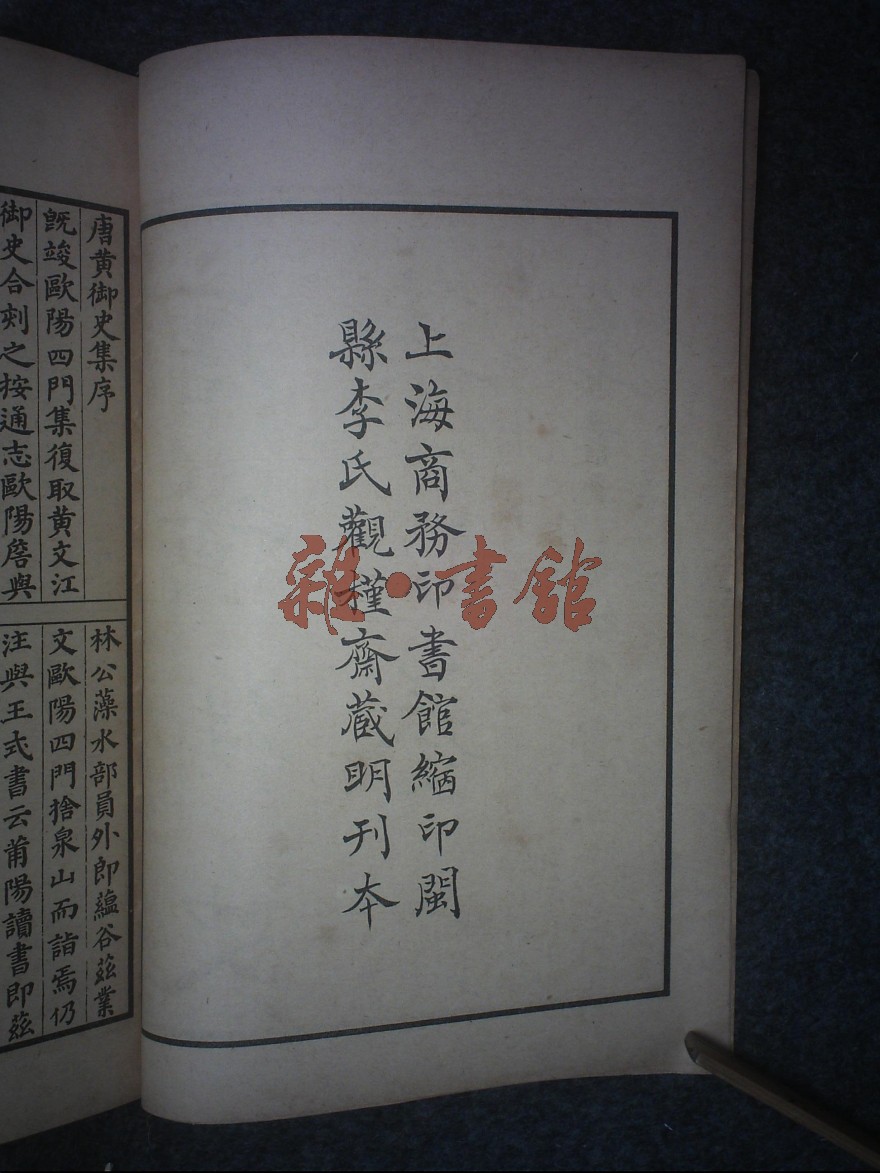 上海商務印書館縮印閩
縣李氏觀槿齋藏明刊本
雜·書館
唐黄御史集序
旣竣歐陽四門集復取黄文江
御史合刻之按通志歐陽詹與
林公藻水部員外即蘊谷茲業
文歐陽四門捨泉山而詣焉仍
注與王式書云莆陽讀書即茲